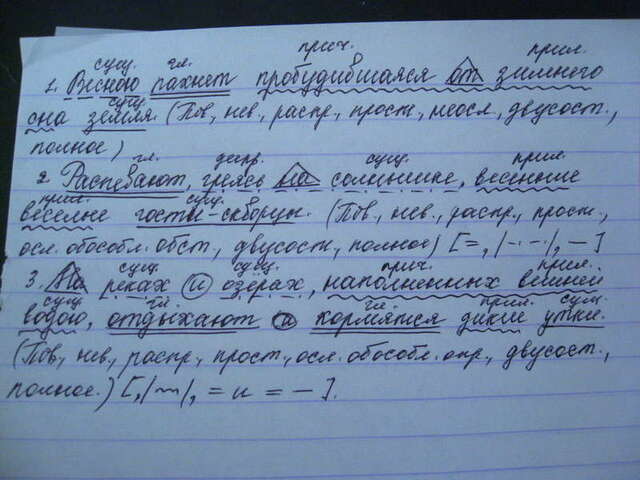 сущ. гл. прич. прил.
1. Весною пахнет пробудившаяся от зимнего
сущ. сущ.
сна земля. (Пов., нев., распр., прост., неосл., двусост.,
полное)
гл. деепр. сущ. прил.
2. Распевают, греясь на солнышке, весенние
прил. сущ.
веселые гости-скворцы. (Пов., нев., распр., прост.,
осл. обособл. обст., двусост., полное) [=, |-.-.|, —]
сущ. сущ. прич. прил.
3. На реках и озёрах, наполненных вешней
сущ. гл. гл. прил. сущ.
водою, отдыхают и кормятся дикие утки.
(Пов., нев., распр., прост., осл. обособл. опр., двусост.,
полное.) [, |~|, = и = —].